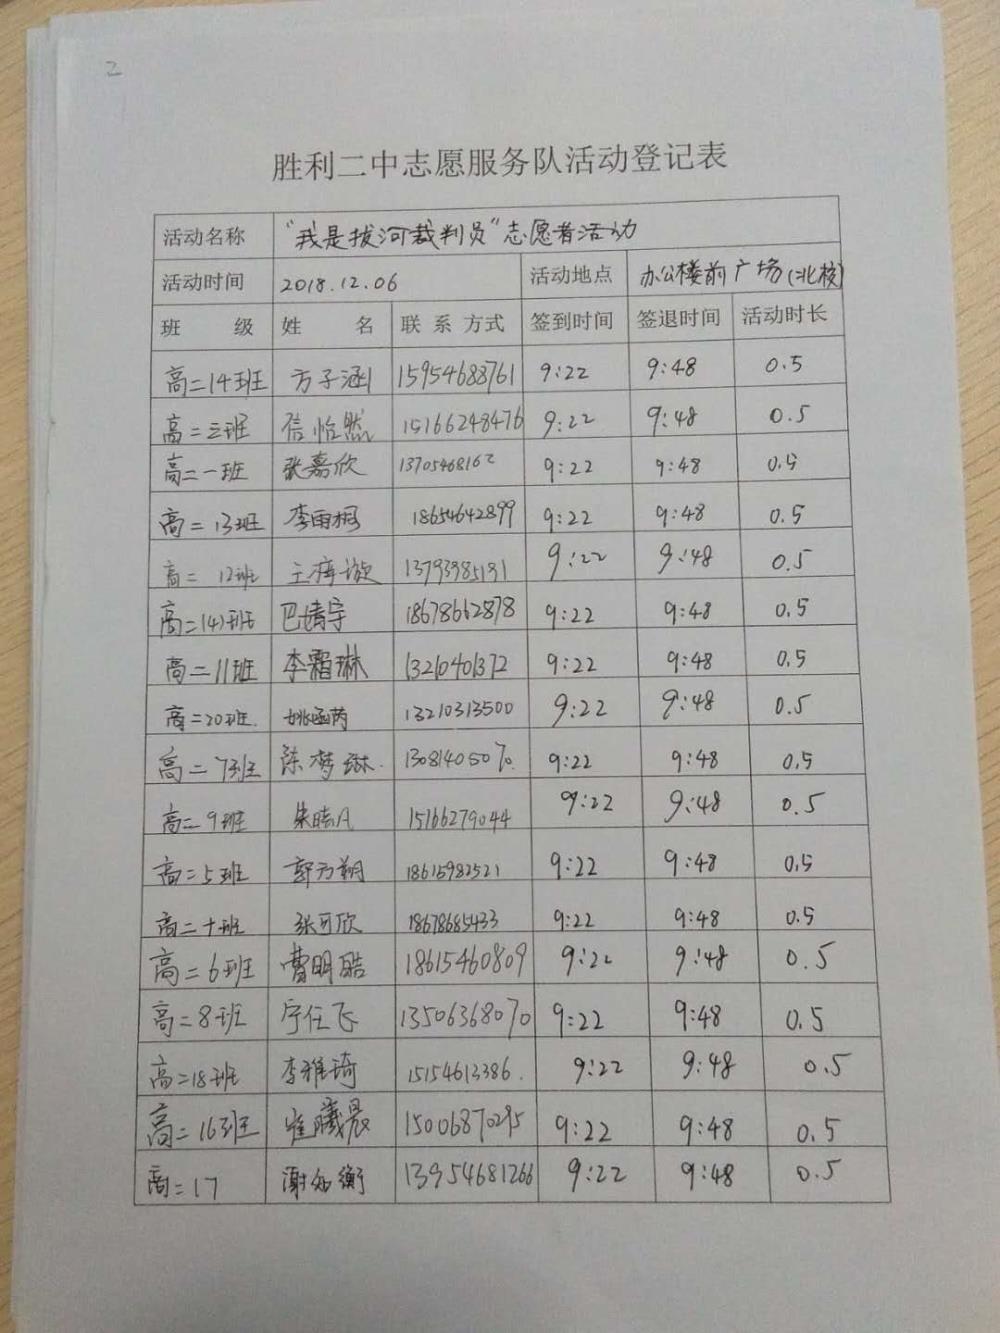 2
胜利二中志愿服务队活动登记表
活动名称 “我是拔河裁判员”志愿者活动
活动时间 2018.12.06 活动地点 办公楼前广场(北校)
班 级 姓 名 联系方式 签到时间 签退时间 活动时长
高二14班 方子涵 15954688761 9:22 9:48 0.5
高二三班 信怡然 15166248476 9:22 9:48 0.5
高二一班 张嘉欣 13705468162 9:22 9:48 0.5
高二13班 李雨桐 18654642899 9:22 9:48 0.5
高二 12班 13793985191 9:22 9:48 0.5
高二14)班 巴婧宇 18678662878 9:22 9:48 0.5
高二11班 李霜琳 13210401372 9:22 9:48 0.5
高二20班. 姚函芮 13210313500 9:22 9:48 0.5
高二7班 陈梦琳. 9:22 9:48 0.5
高二9班 朱晓凡 15166279044 9:22 9:48 0.5
高二5班 郭方翔 18615982521 9:22 9:48 0.5
高二十班 张可欣 18678685433 9:22 9:48 0.5
高二6班 曹明皓 18615460809 9:22 9:48 0.5
高二8班 宁任飞 13506368070 9:22 9:48 0.5
高二18班 李雅琦 15154613386. 9:22 9:48 0.5
高二16班 崔曦晨 9:22 9:48 0.5
高二17 谢知衡 13954681266 9:22 9:48 0.5